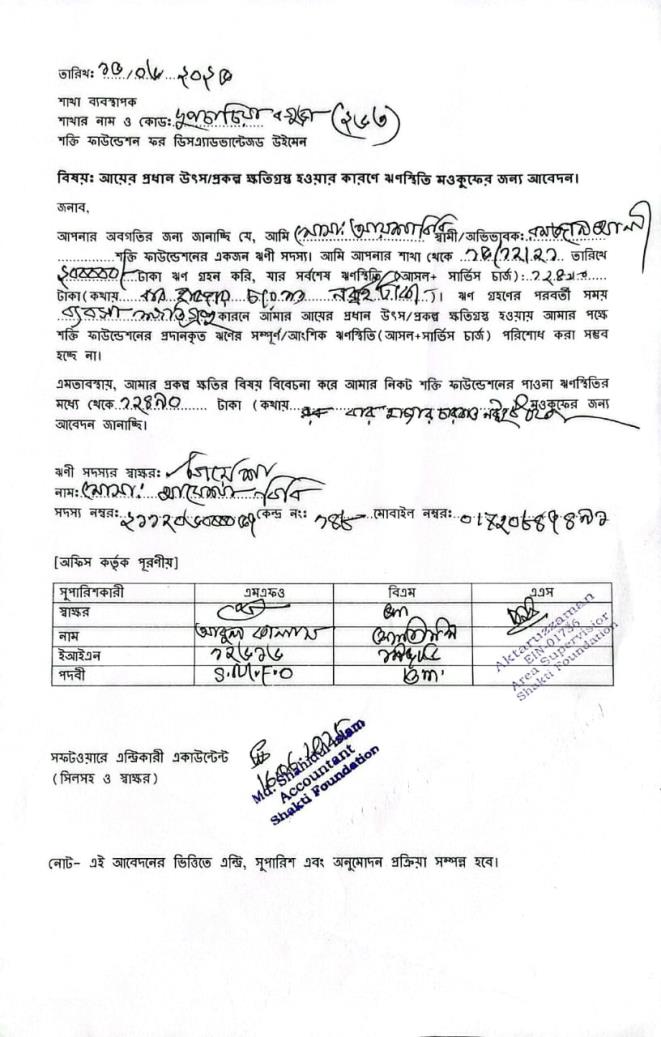 তারিখ: ১৬/০৬/২০২৫
শাখা ব্যবস্থাপক
শাখার নাম ও কোড: দুপচাচিয়া বগুড়া (২৬৩)
শক্তি ফাউন্ডেশন ফর ডিসএ্যাডভান্টেজড উইমেন
বিষয়: আয়ের প্রধান উৎস/প্রকল্প ক্ষতিগ্রস্থ হওয়ার কারণে ঋণস্থিতি মওকুফের জন্য আবেদন।
জনাব,
আপনার অবগতির জন্য জানাচ্ছি যে, আমি মোসা: আয়েশা বিবি স্বামী/অভিভাবক: রমজান আলী
শক্তি ফাউন্ডেশনের একজন ঋণী সদস্য। আমি আপনার শাখা থেকে তারিখে
টাকা ঋণ গ্রহন করি, যার সর্বশেষ ঋণস্থিতি (আসল+ সার্ভিস চার্জ): ১২৪৯০
টাকা (কথায় বার হাজার চারশত নব্বই টাকা)। ঋণ গ্রহণের পরবর্তী সময়
ব্যবসা ক্ষতিগ্রস্থ কারনে আমার আয়ের প্রধান উৎস/প্রকল্প ক্ষতিগ্রস্থ হওয়ায় আমার পক্ষে
শক্তি ফাউন্ডেশনের প্রদানকৃত ঋণের সম্পূর্ণ/আংশিক ঋণস্থিতি (আসল+সার্ভিস চার্জ) পরিশোধ করা সম্ভব
হচ্ছে না।
এমতাবস্থায়, আমার প্রকল্প ক্ষতির বিষয় বিবেচনা করে আমার নিকট শক্তি ফাউন্ডেশনের পাওনা ঋণস্থিতির
মধ্যে থেকে ১২৪৯০ টাকা (কথায় বার হাজার চারশত নব্বই টাকা মওকুফের জন্য
আবেদন জানাচ্ছি।
ঋণী সদস্যর স্বাক্ষর: আয়েশা
নাম: মোসা: আয়েশা বিবি
সদস্য নম্বর: কেন্দ্র নং: মোবাইল নম্বর:
[অফিস কর্তৃক পূরণীয়]
সুপারিশকারী এমএফও বিএম এএস
স্বাক্ষর
নাম আবুল কালাম
ইআইএন ১২৬১৬
পদবী S.M.F.O B.M.
Aktaruzzaman
EIN-01736
Area Supervisior
Shakti Foundation
সফটওয়ারে এন্ট্রিকারী একাউন্টেন্ট
(সিলসহ ও স্বাক্ষর)
16.06.2025
Md. Shahidul Islam
Accountant
Shakti Foundation
নোট- এই আবেদনের ভিত্তিতে এন্ট্রি, সুপারিশ এবং অনুমোদন প্রক্রিয়া সম্পন্ন হবে।